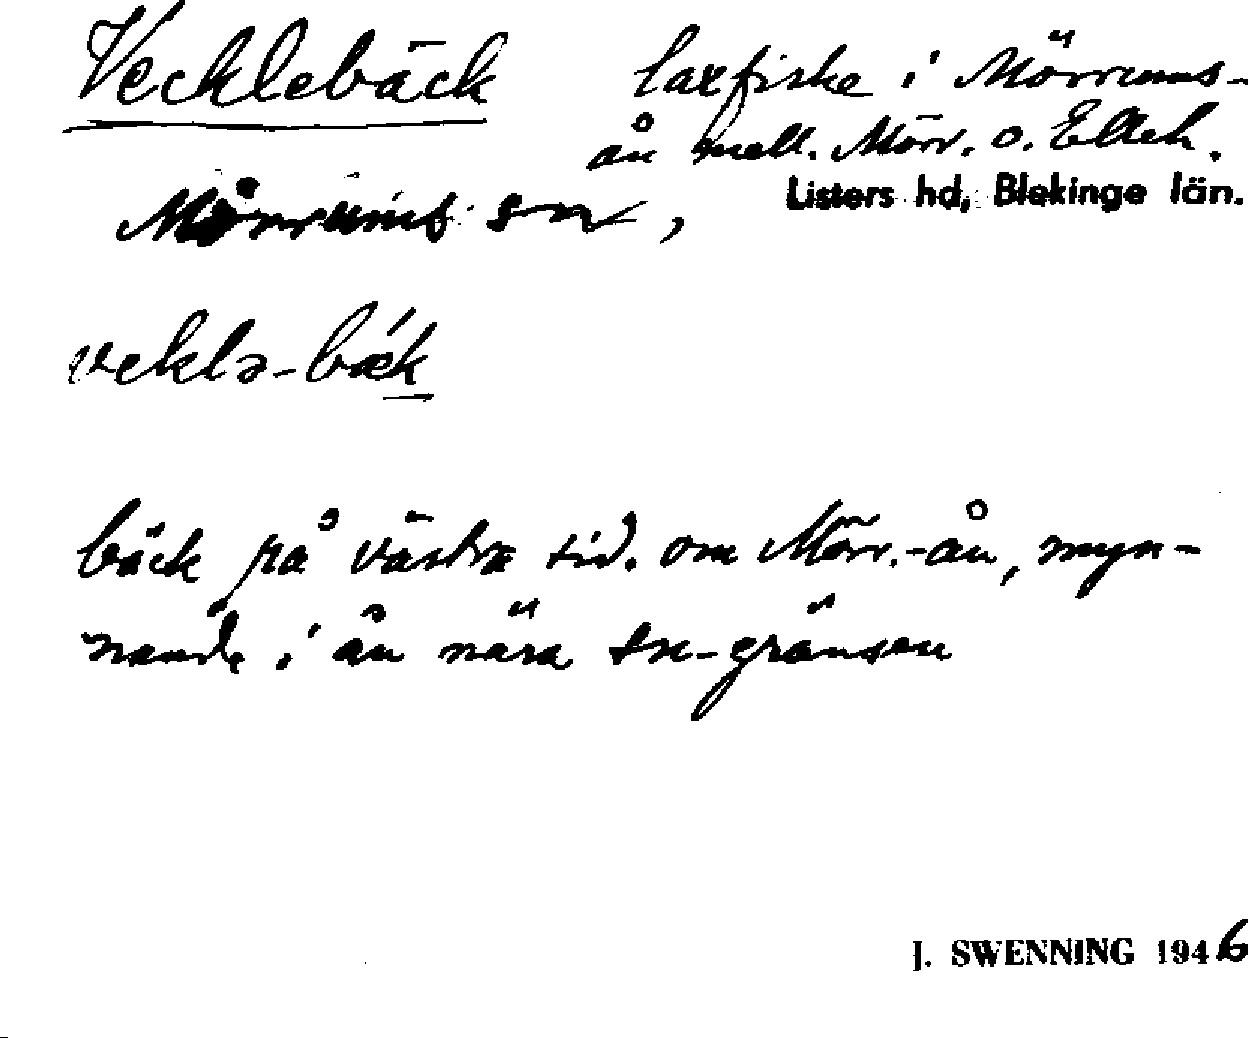 Vecklebäck
laxfiske i Mörrums-
ån mell. Mörr. o. Elleh.
Mörrums sn,
Listers hd, Blekinge län.
veklə-bæ´k
bäck på västra sid. om Mörr.-ån, myn-
nande i ån nära sn-gränsen
J. SWENNING 1946